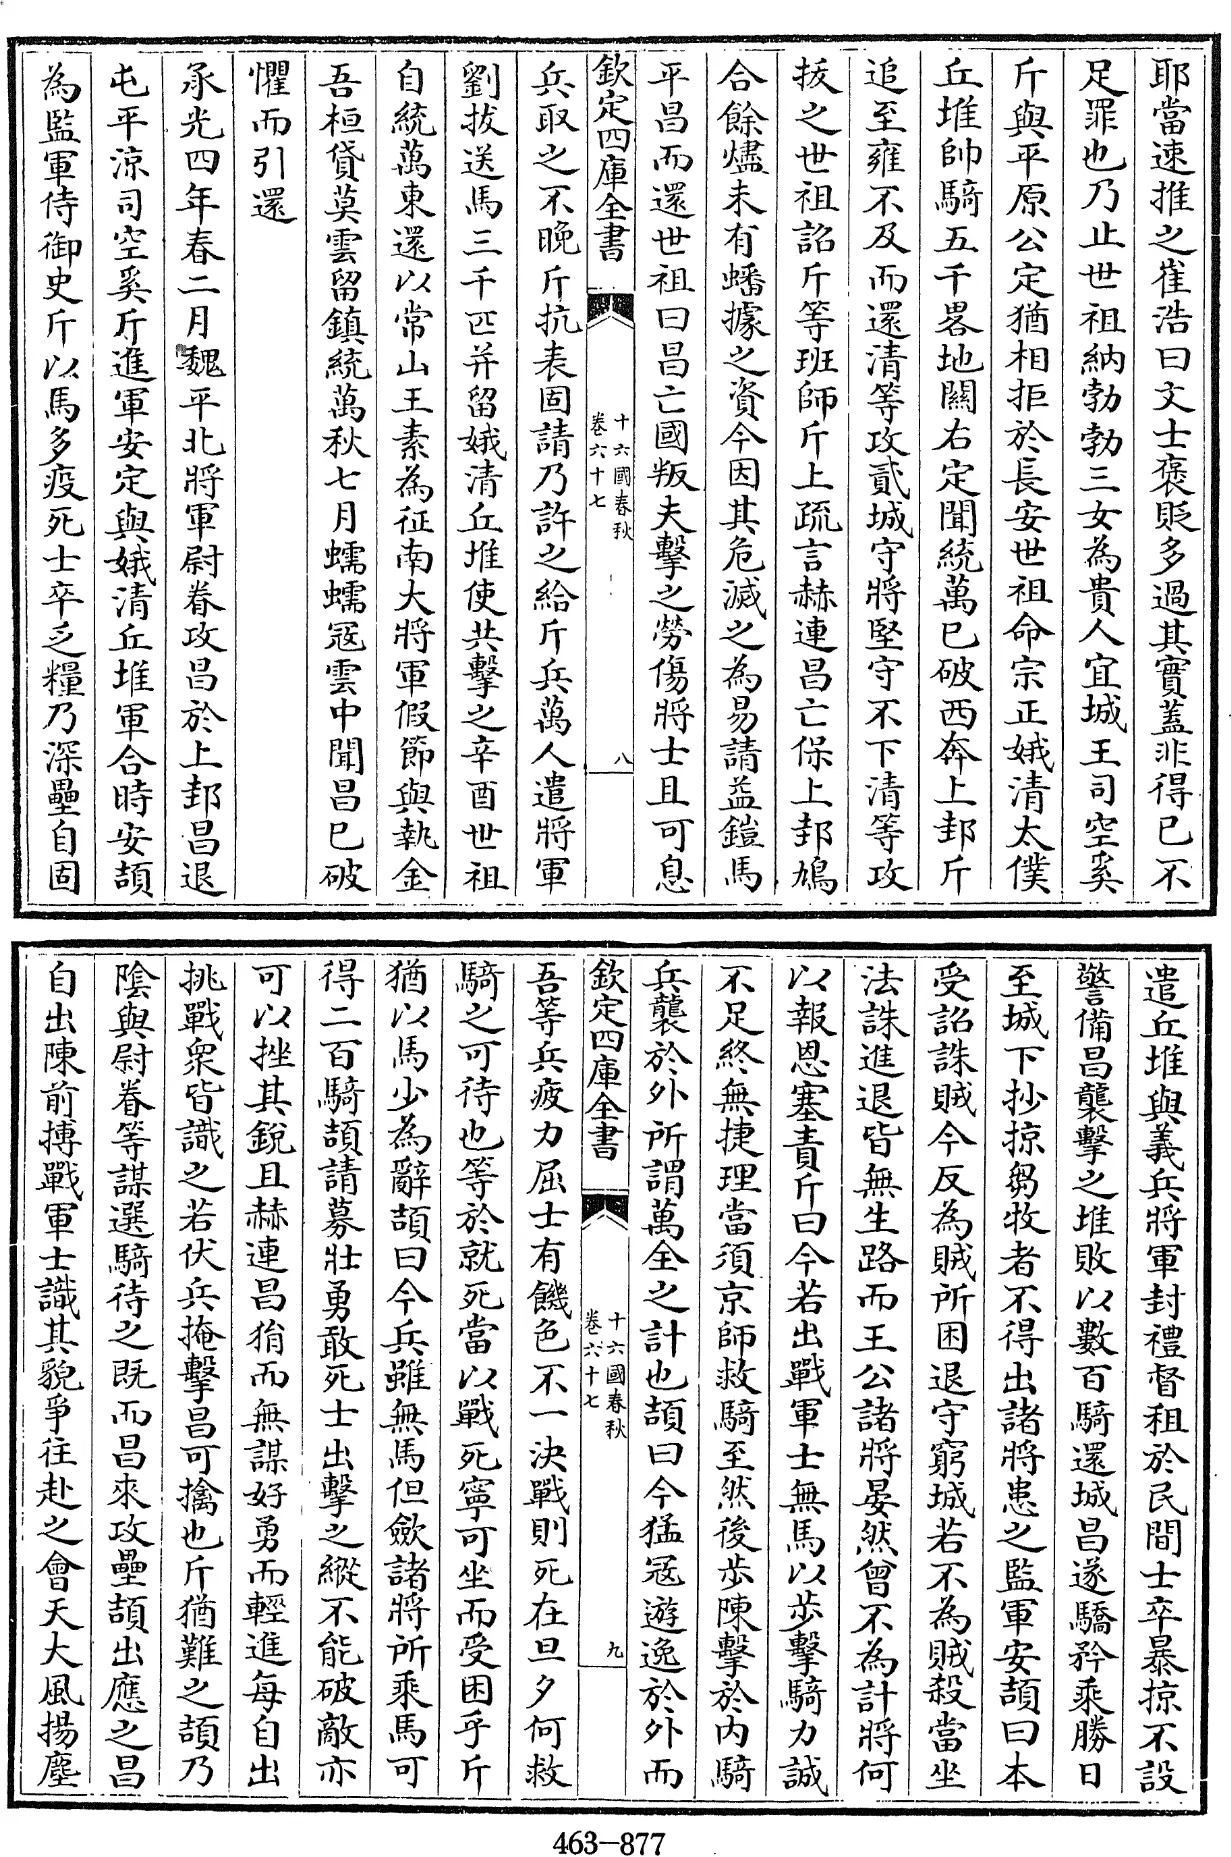 耶當速推之崔浩曰文士褒貶多過其實蓋非得已不
足罪也乃止世祖納勃勃三女為貴人宜城王司空奚
斤與平原公定猶相拒於長安世祖命宗正娥清太僕
丘堆帥騎五千畧地關右定聞統萬已破西奔上邽斤
追至雍不及而還清等攻貳城守將堅守不下清等攻
拔之世祖詔斤等班師斤上疏言赫連昌亡保上邽鳩
合餘燼未有蟠據之資今因其危滅之為易請益鎧馬
平昌而還世祖曰昌亡國叛夫擊之勞傷將士且可息
欽定四庫全書
十六國春秋
卷六十七
八
兵取之不晚斤抗表固請乃許之給斤兵萬人遣將軍
劉拔送馬三千匹并留娥清丘堆使共擊之辛酉世祖
自統萬東還以常山王素為征南大將軍假節與執金
吾桓貸莫雲留鎮統萬秋七月蠕蠕冦雲中聞昌已破
懼而引還
承光四年春二月魏平北將軍尉眷攻昌於上邽昌退
屯平涼司空奚斤進軍安定與娥清丘堆軍合時安頡
為監軍侍御史斤以馬多疫死士卒乏糧乃深壘自固
遣丘堆與義兵將軍封禮督租於民間士卒暴掠不設
警備昌襲擊之堆敗以數百騎還城昌遂驕矜乘勝日
至城下抄掠芻牧者不得出諸將患之監軍安頡曰本
受詔誅賊今反為賊所困退守窮城若不為賊殺當坐
法誅進退皆無生路而王公諸將晏然曾不為計將何
以報恩塞責斤曰今若出戰軍士無馬以步擊騎力誠
不足終無捷理當須京師救騎至然後步陳擊於內騎
兵襲於外所謂萬全之計也頡曰今猛冦遊逸於外而
欽定四庫全書
十六國春秋
卷六十七
九
吾等兵疲力屈士有饑色不一決戰則死在旦夕何救
騎之可待也等於就死當以戰死寧可坐而受困乎斤
猶以馬少為辭頡曰今兵雖無馬但斂諸將所乘馬可
得二百騎頡請募壯勇敢死士出擊之縱不能破敵亦
可以挫其銳且赫連昌狷而無謀好勇而輕進每自出
挑戰衆皆識之若伏兵掩擊昌可擒也斤猶難之頡乃
陰與尉眷等謀選騎待之既而昌來攻壘頡出應之昌
自出陳前搏戰軍士識其貌爭往赴之會天大風揚塵
463-877